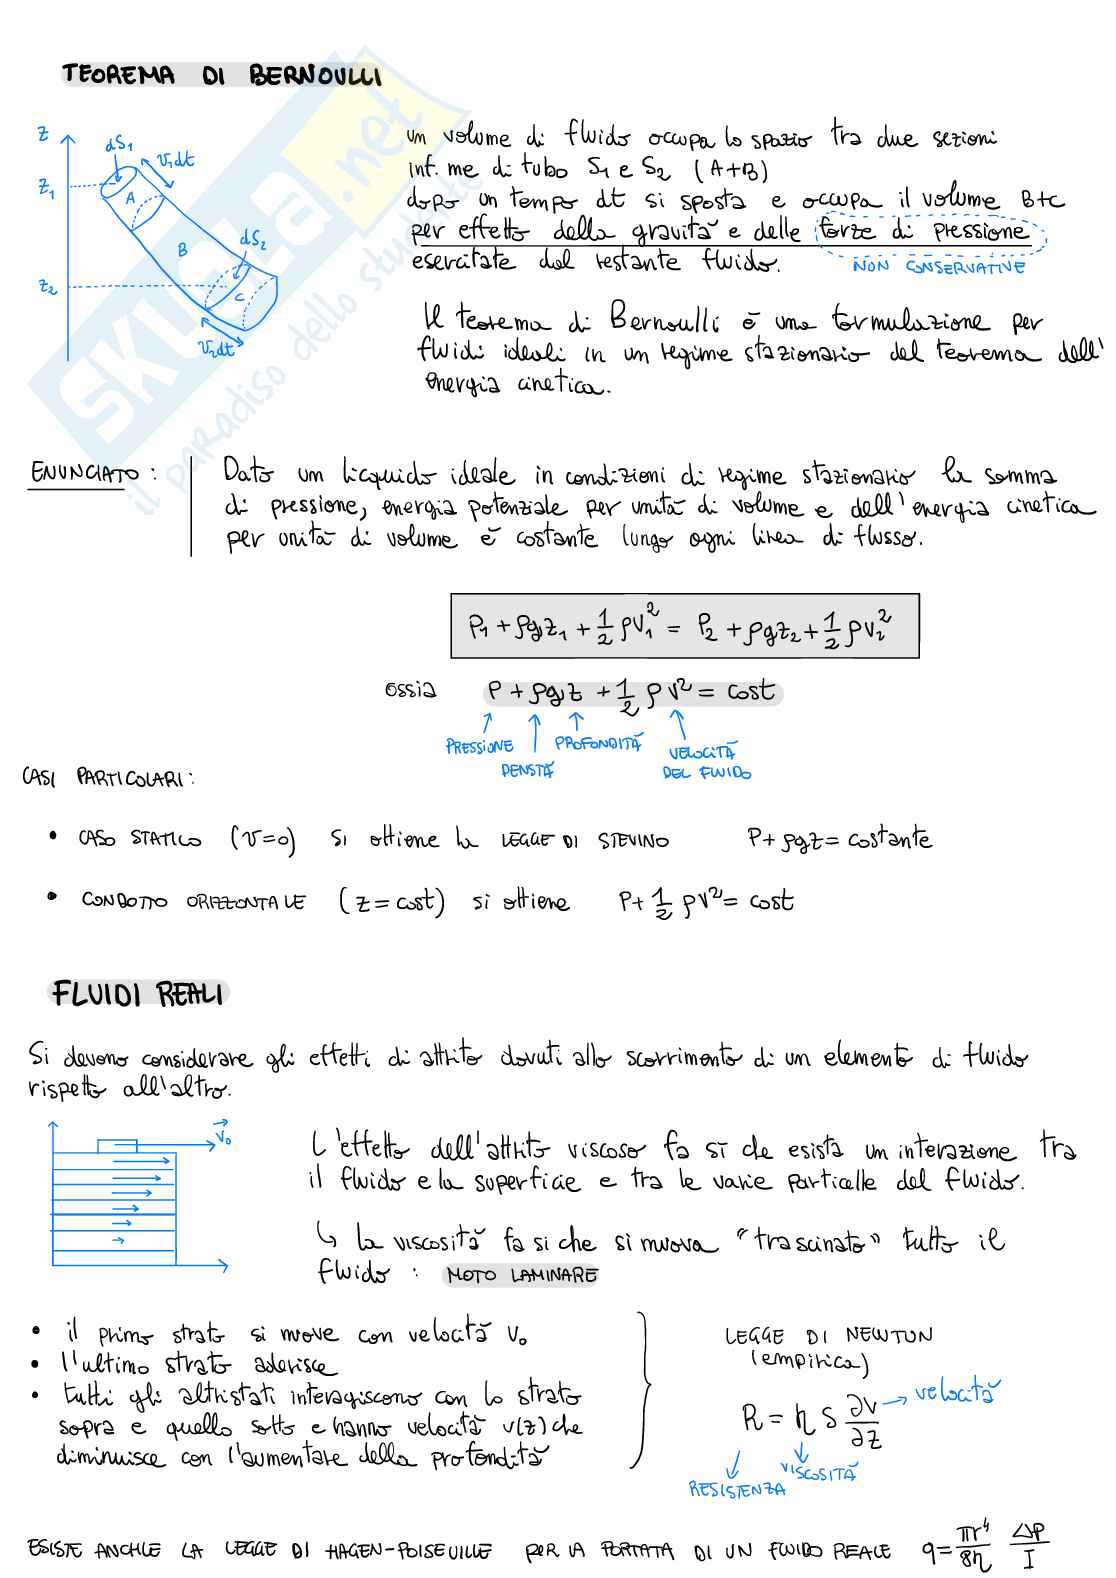 TEOREMA DI BERNOULLI
z
dS1
v1dt
z1
A
B
dS2
z2
C
v2dt
un volume di fluido occupa lo spazio tra due sezioni
inf.me di tubo S1 e S2 (A+B)
dopo un tempo dt si sposta e occupa il volume B+C
per effetto della gravità e delle forze di pressione
esercitate dal restante fluido.
NON CONSERVATIVE
Il teorema di Bernoulli è una formulazione per
fluidi ideali in un regime stazionario del teorema dell'
energia cinetica.
ENUNCIATO :
Dato un licquido ideale in condizioni di regime stazionario la somma
di pressione, energia potenziale per unità di volume e dell'energia cinetica
per unità di volume è costante lungo ogni linea di flusso.
P1 + ρgz1 + 1/2 ρv1² = P2 + ρgz2 + 1/2 ρv2²
ossia P + ρgz + 1/2 ρ v² = cost
PRESSIONE
DENSTÀ
PROFONDITÀ
VELOCITÀ
DEL FLUIDO
CASI PARTICOLARI :
• CASO STATICO (v=0) si ottiene la LEGGE DI STEVINO P+ ρgz = costante
• CONDOTTO ORIZZONTALE (z = cost) si ottiene P+ 1/2 ρv² = cost
FLUIDI REALI
Si devono considerare gli effetti di attrito dovuti allo scorrimento di un elemento di fluido
rispetto all'altro.
v0
L'effetto dell'attrito viscoso fa sì che esista un interazione tra
il fluido e la superficie e tra le varie particelle del fluido.
↳ la viscosità fa si che si muova "trascinato" tutto il
fluido : MOTO LAMINARE
• il primo strato si muove con velocità v0
• l'ultimo strato aderisce
• tutti gli altristati interagiscono con lo strato
sopra e quello sotto e hanno velocità v(z) che
diminuisce con l'aumentare della profondità
LEGGE DI NEWTUN
(empirica)
R = η S ∂v/∂z → velocità
RESISTENZA
VISCOSITÀ
ESISTE ANCHE LA LEGGE DI HAGEN-POISEUILLE PER LA PORTATA DI UN FLUIDO REALE q = πr⁴/8η ΔP/I
SKUOLA.net
il paradiso dello studente